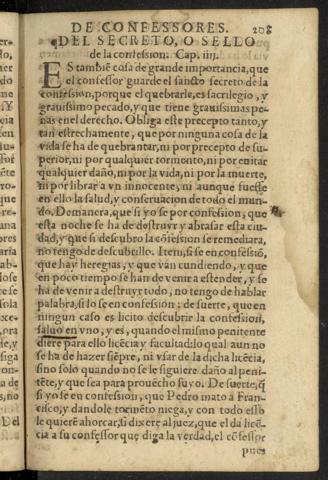 DE CONFESSORES. 208
DEL SECRETO, O SELLO
de la confession. Cap. iiij.
ES tambiẽ cosa de grande importancia, que
el confessor guarde el sancto secreto de la
confession, porque el quebrarle, es sacrilegio, y
grauissimo pecado, y que tiene grauissimas pe-
nas en el derecho. Obliga este precepto tanto, y
tan estrechamente, que por ninguna cosa de la
vida se ha de quebrantar, ni por precepto de su-
perior, ni por qualquier tormento, ni por euitar
qualquier daño, ni por la vida, ni por la muerte,
ni por librar a vn innocente, ni aunque fuesse
en ello la salud, y conseruacion de todo el mun-
do. Demanera, que si yo se por confession, que
esta noche se ha de destruyr y abrasar esta ciu-
dad, y que si descubro la cõfesion se remediara,
no tengo de descubrillo. Item, si se en confessiõ,
que hay heregias, y que van cundiendo, y que
en poco tiempo se han de venir a estender, y se
ha de venir a destruyr todo, no tengo de hablar
palabra, si lo se en confession: de suerte, que en
ningun caso es licito descubrir la confession,
saluo en vno, y es, quando el mismo penitente
diere para ello licẽcia y facultad: lo qual aun no
se ha de hazer siẽpre, ni vsar de la dicha licẽcia,
sino solo quando no se le siguiere daño al peni-
tẽte, y que sea para prouecho suyo. De suerte, q̃
si yo se en confession, que Pedro mato a Fran-
cisco, y dandole tormẽto niega, y con todo esso
le quierẽ ahorcar, si dixere al juez, que el da licẽ-
cia a su confessor que diga la verdad, el cõfessor
pues